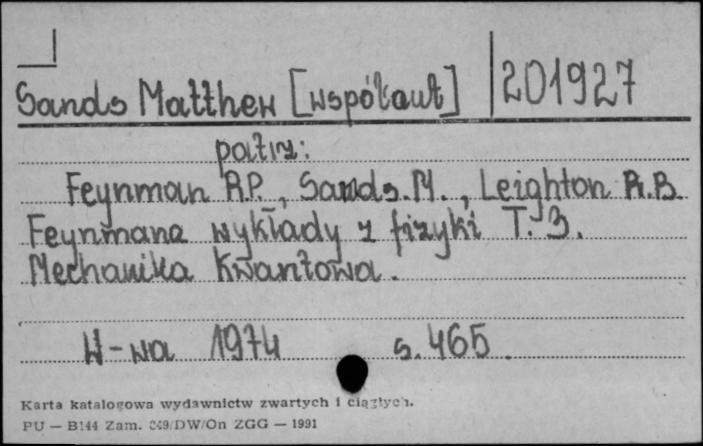 Sands Matthew [współaut] 201927
patrz:
Feynman R.P., Sands. M., Leighton R.B.
Feynmana wykłady z fizyki T. 3.
Mechanika kwantowa.
W-wa 1974 s. 465.
Karta katalogowa wydawnictw zwartych i ciągłych.
PU — B144 Zam. 249/DW/On ZGG — 1991